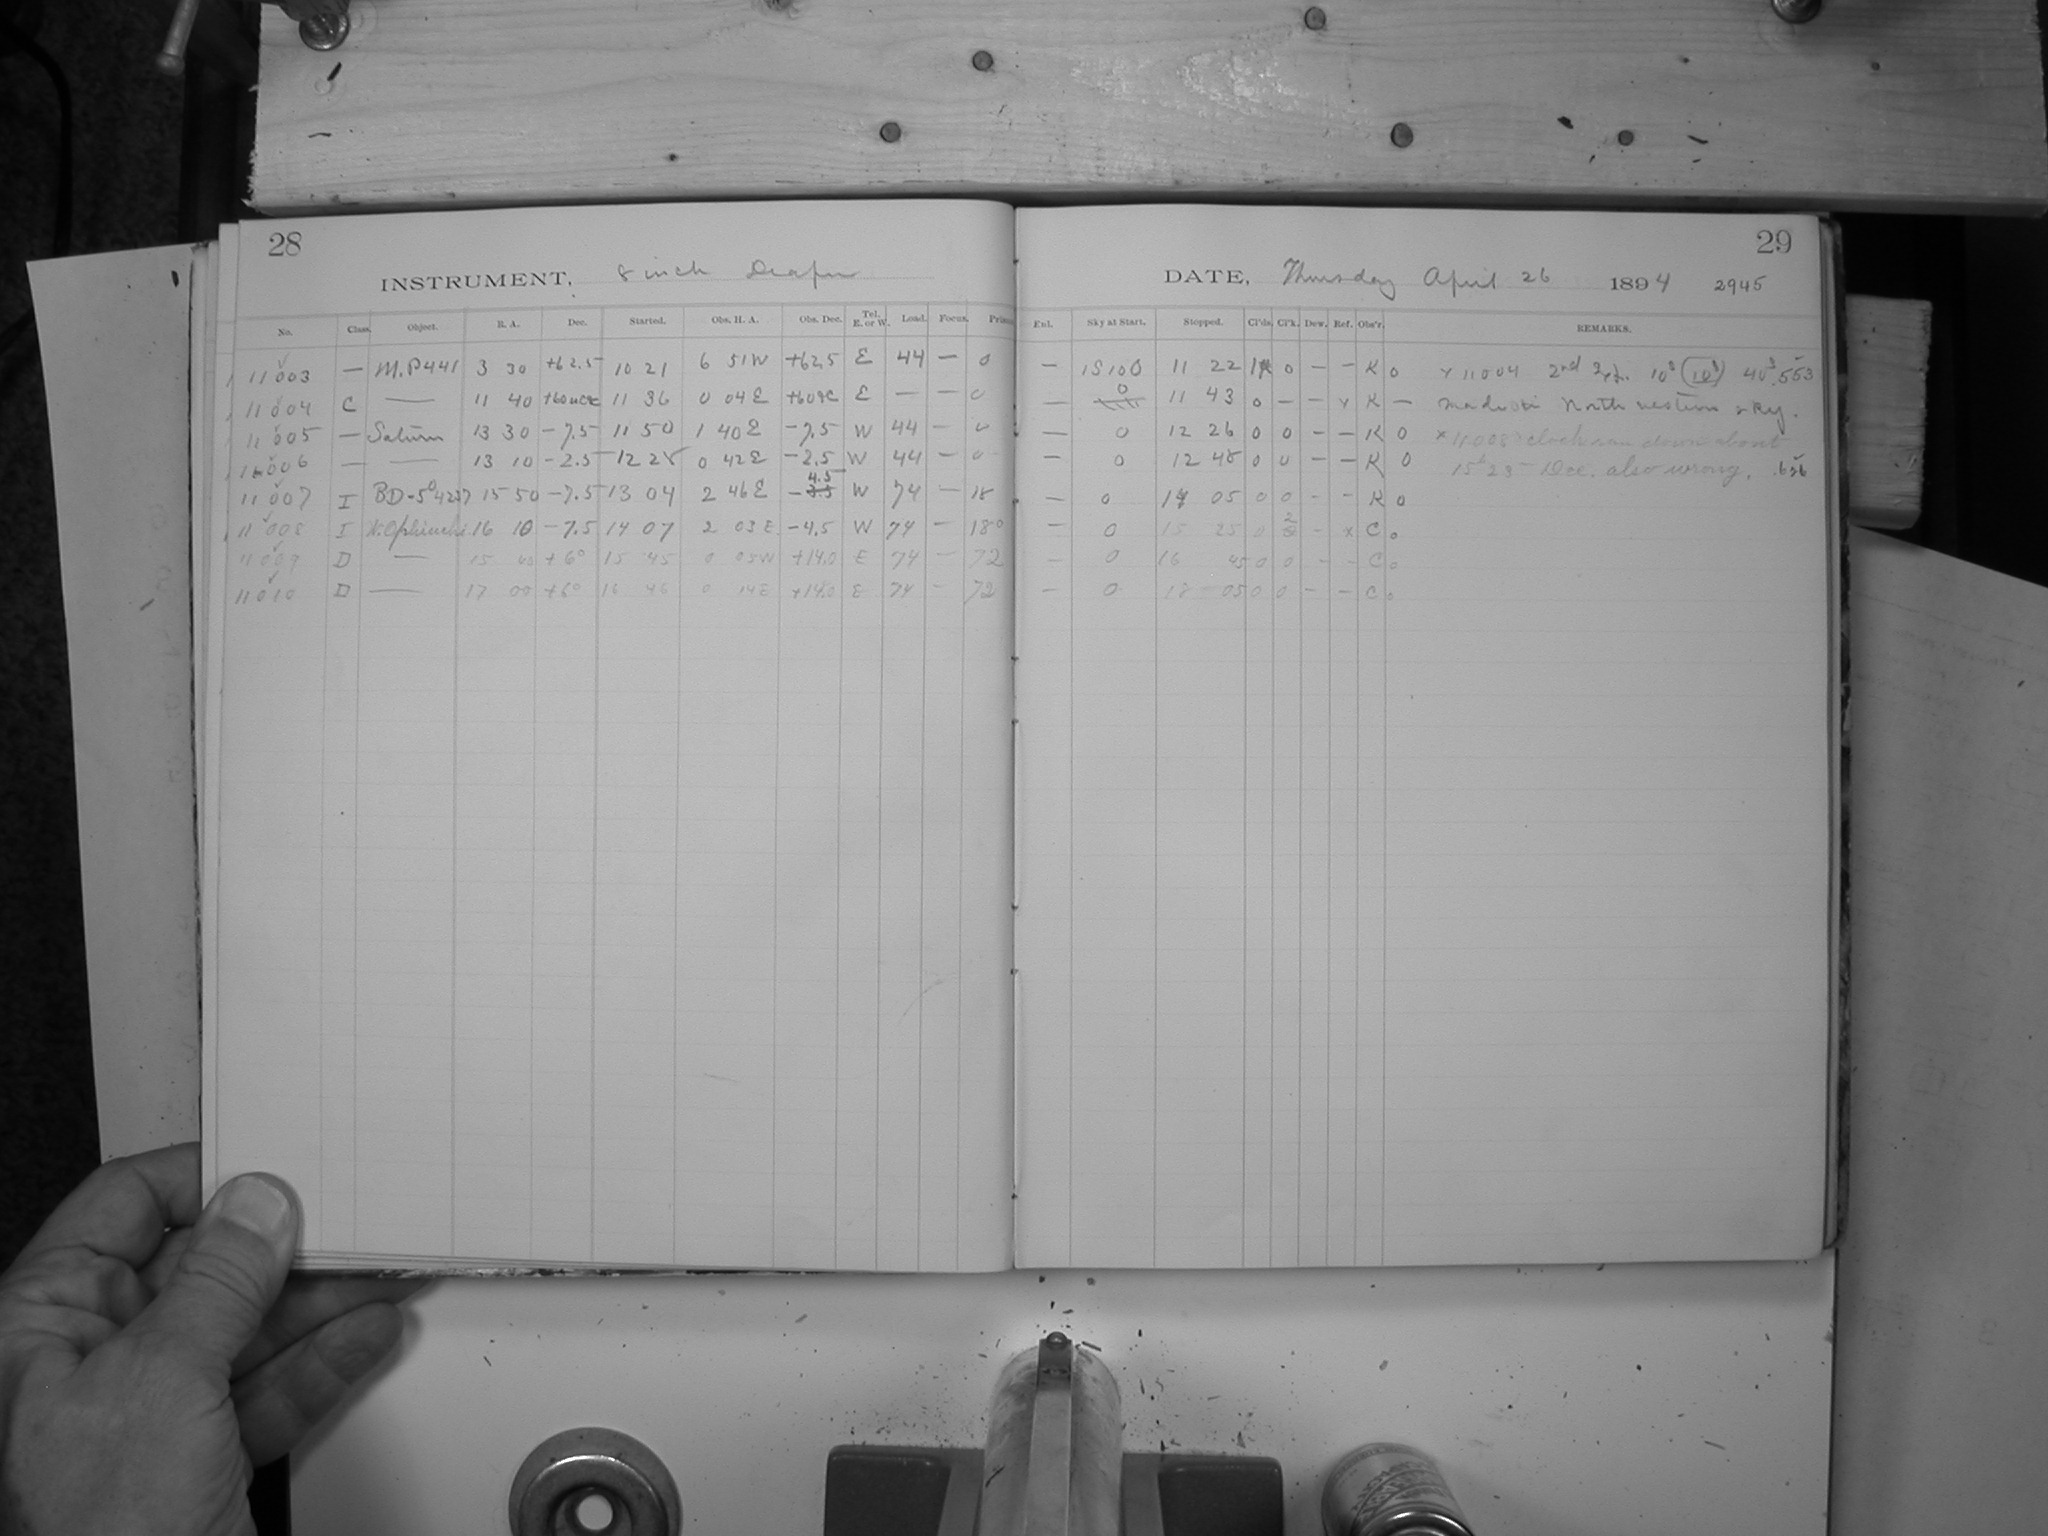 28
INSTRUMENT, 8 inch Draper
No. Class. Object. R. A. Dec. Started. Obs. H. A. Obs. Dec. Tel. E. or W. Load. Focus. Prism
11003 — M.P441 3 30 +62.5 10 21 6 51W +62.5 E 44 — 0
11004 C — 11 40 11 36 0 04E E — — 0
11005 — Saturn 13 30 -7.5 11 50 1 40E -7.5 W 44 — 0
11006 — — 13 10 -2.5 12 28 0 42E -2.5 W 44 — 0
11007 I BD-5°4237 15 50 -7.5 13 04 2 46E -4.5 W 74 — 18
11008 I 16 10 -7.5 14 07 2 03E -4.5 W 74 — 180
11009 D — 15 40 +6° 15 45 0 05W +14.0 E 74 — 72
11010 D — 17 00 +6° 16 46 0 14E +14.0 E 74 — 72
29
DATE, Thursday April 26 1894 2945
Enl. Sky at Start. Stopped. Cl'ds. Cl'k. Dew. Ref. Obs'r. REMARKS.
— 1S100 11 22 0 — — K 0 x 11004 2nd 10s (10s) 40s .553
— 0 11 43 0 — — x K — made on North western sky.
— 0 12 26 0 0 — — K 0 x 11008 clock ran down about
— 0 12 48 0 0 — — K 0 15h 25 — Dec. also wrong. .636
— 0 14 05 0 0 — — K 0
— 0 15 25 0 2 — x C 0
— 0 16 45 0 0 — — C 0
— 0 18 05 0 0 — — C 0